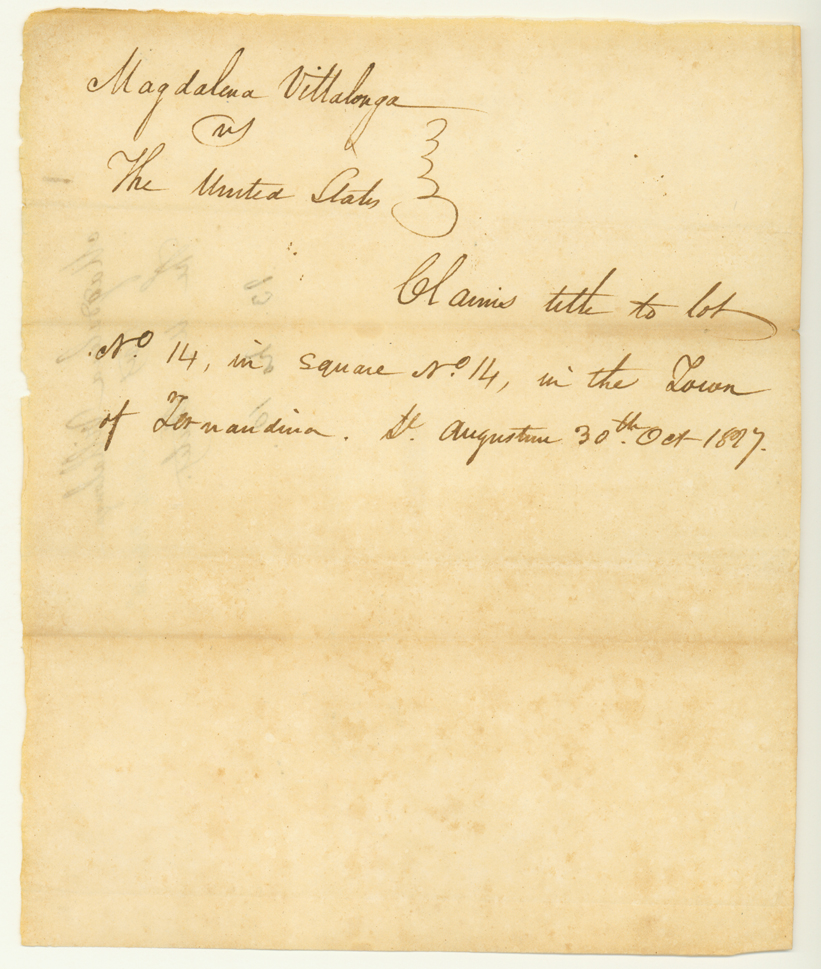 Magdalena Villalonga
vs
The United States
Claims title to lot
No. 14, in Square No. 14, in the Town
of Fernandina. St. Augustine 30th. Oct 1827.